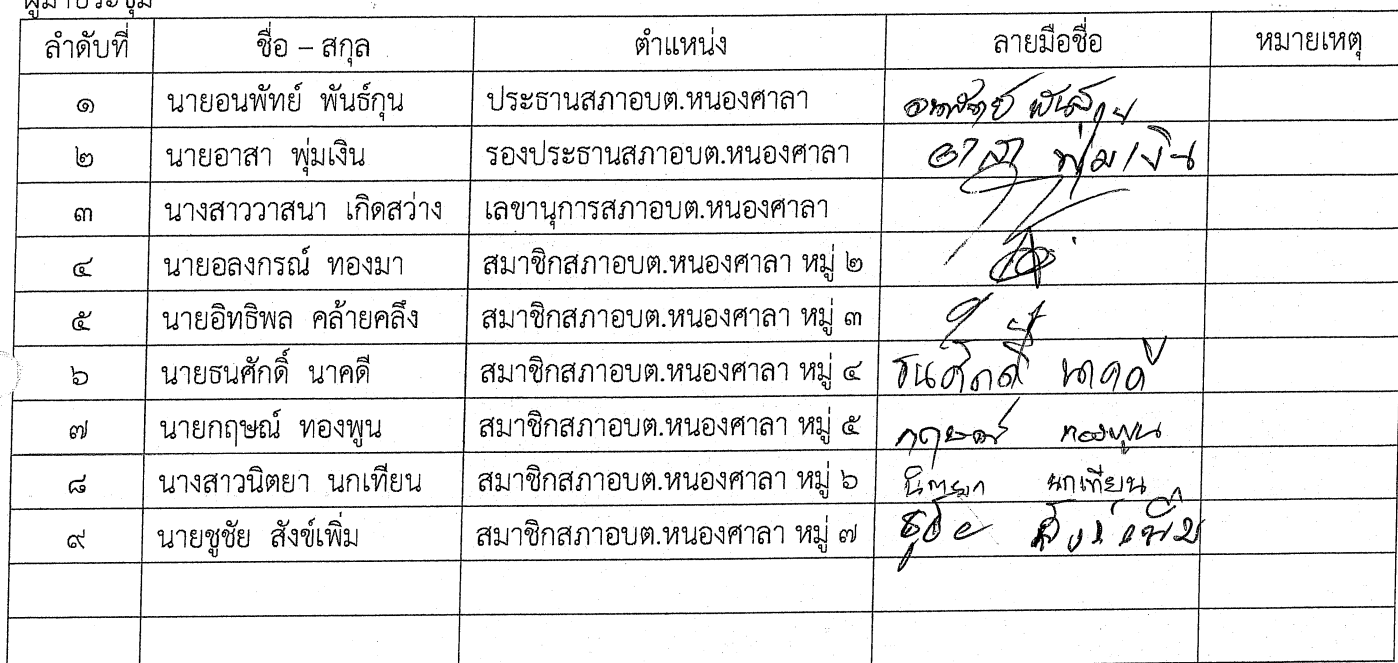 ผู้มาประชุม
ลำดับที่ ชื่อ – สกุล ตำแหน่ง ลายมือชื่อ หมายเหตุ
๑ นายอนพัทย์ พันธ์กุน ประธานสภาอบต.หนองศาลา
๒ นายอาสา พุ่มเงิน รองประธานสภาอบต.หนองศาลา อาสา พุ่มเงิน
๓ นางสาววาสนา เกิดสว่าง เลขานุการสภาอบต.หนองศาลา
๔ นายอลงกรณ์ ทองมา สมาชิกสภาอบต.หนองศาลา หมู่ ๒
๕ นายอิทธิพล คล้ายคลึง สมาชิกสภาอบต.หนองศาลา หมู่ ๓
๖ นายธนศักดิ์ นาคดี สมาชิกสภาอบต.หนองศาลา หมู่ ๔ ธนศักดิ์ นาคดี
๗ นายกฤษณ์ ทองพูน สมาชิกสภาอบต.หนองศาลา หมู่ ๕ กฤษณ์ ทองพูน
๘ นางสาวนิตยา นกเทียน สมาชิกสภาอบต.หนองศาลา หมู่ ๖ นิตยา นกเทียน
๙ นายชูชัย สังข์เพิ่ม สมาชิกสภาอบต.หนองศาลา หมู่ ๗